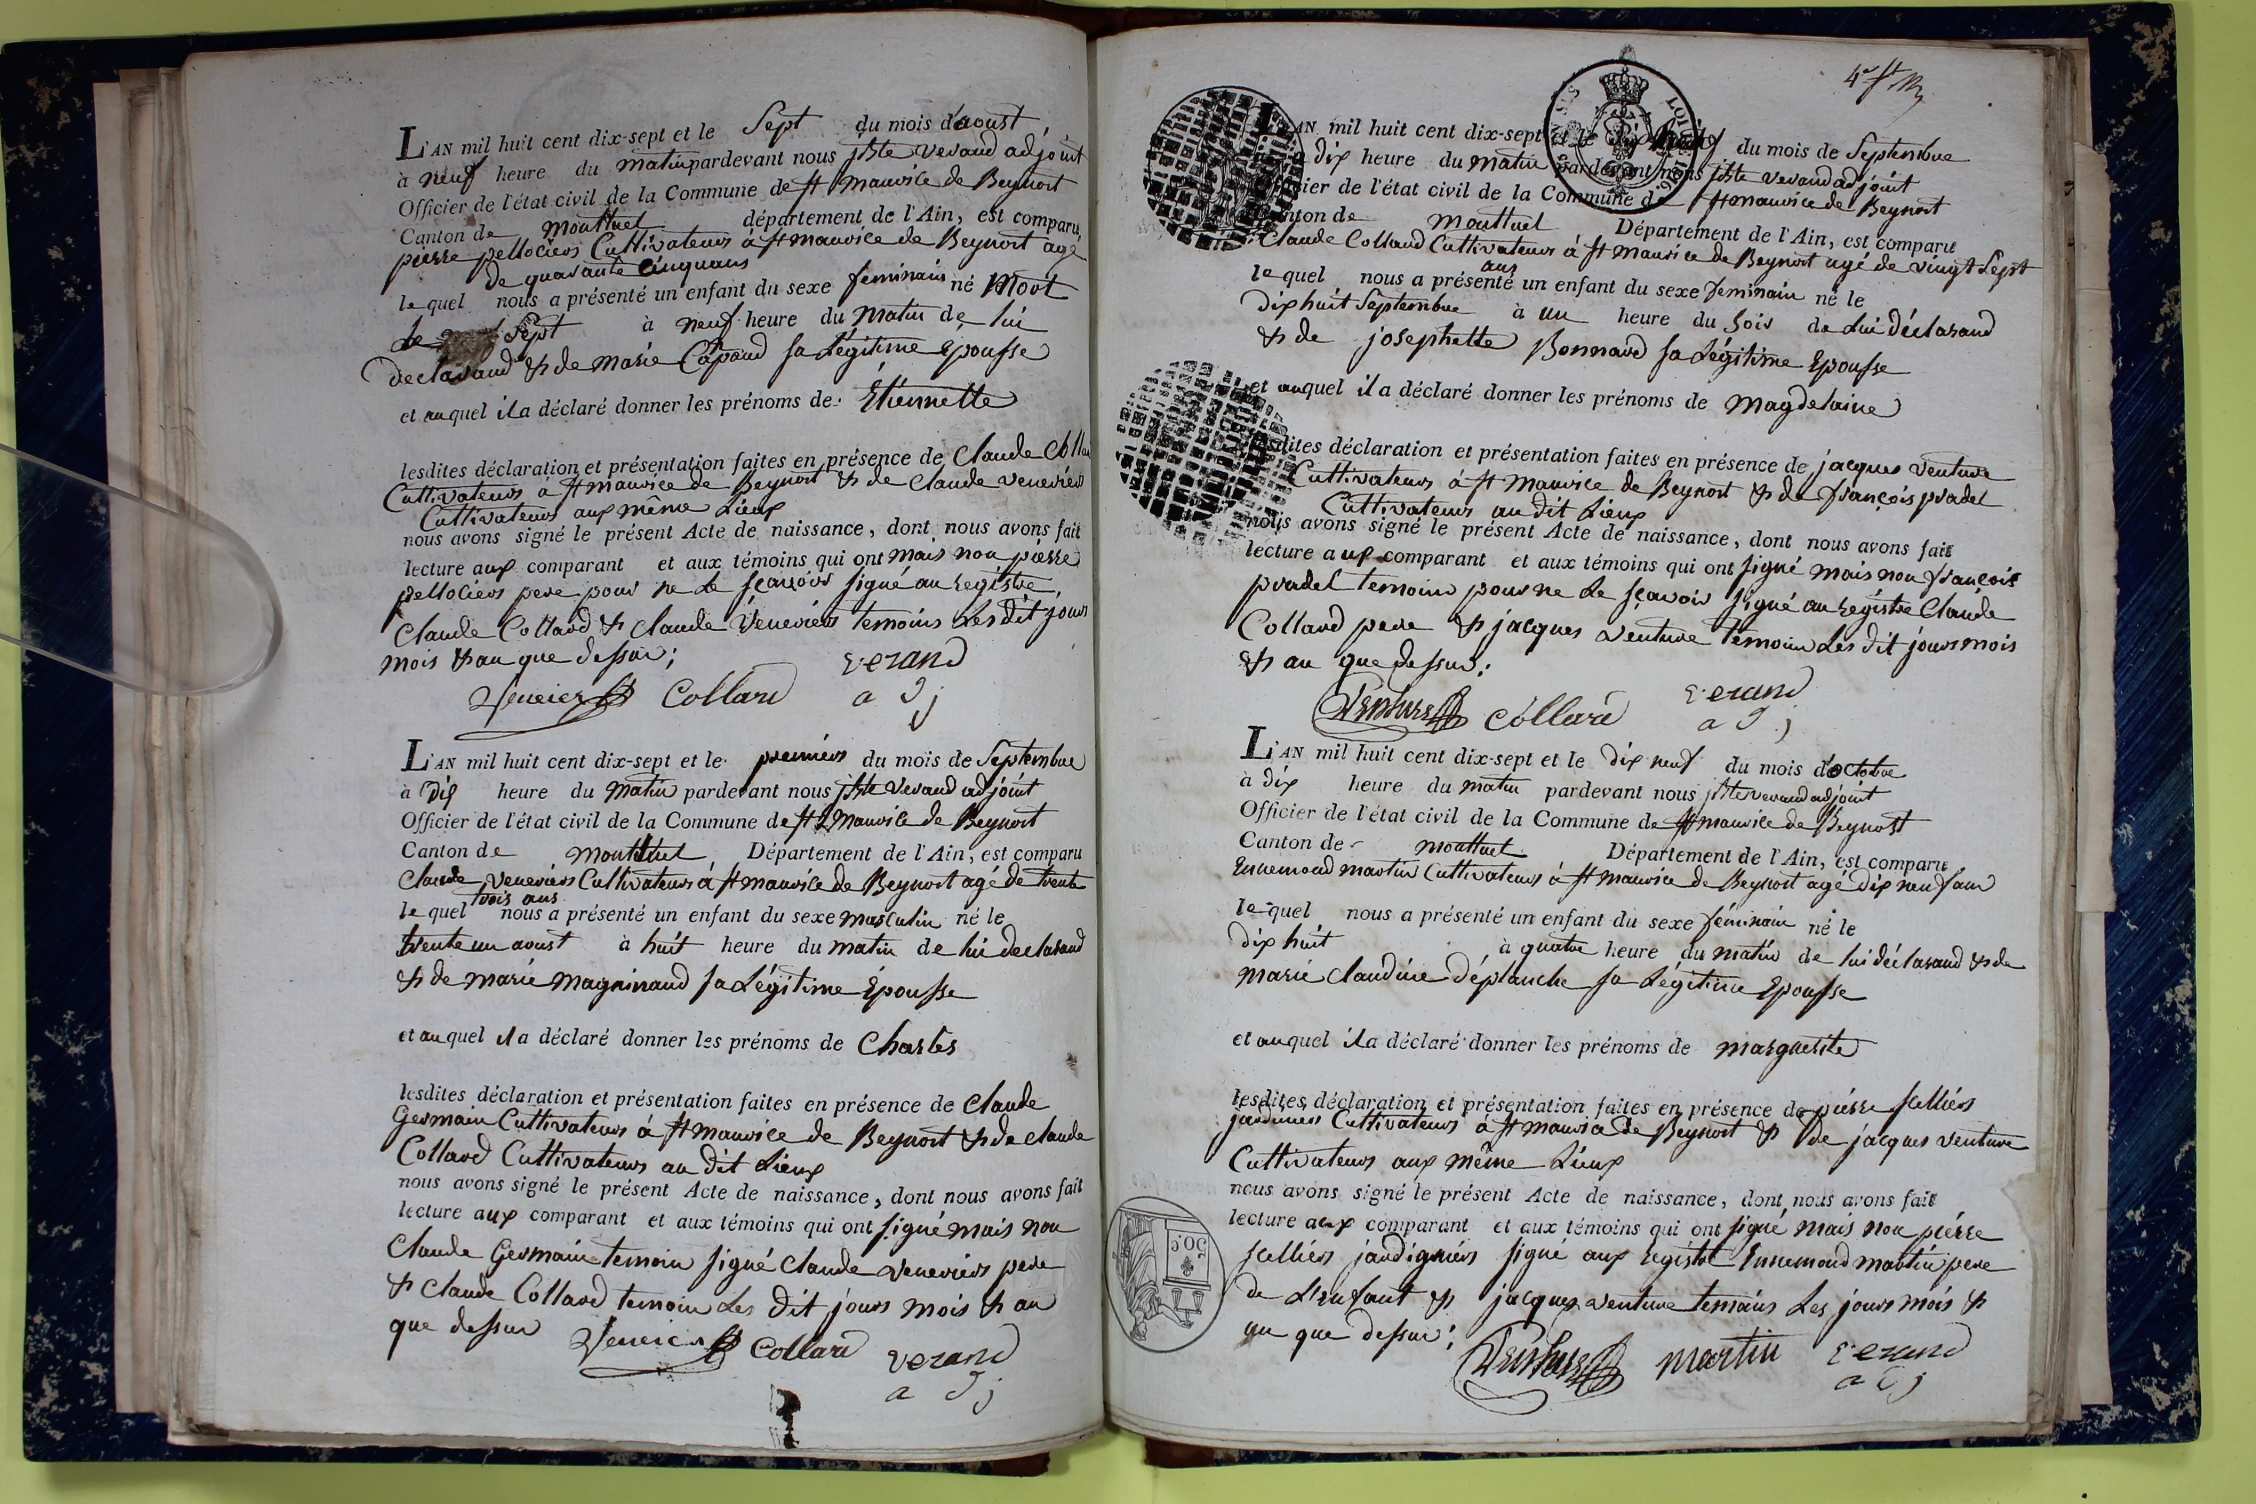 L'AN mil huit cent dix-sept et le Sept du mois d'aoust
à neuf heure du matin pardevant nous jbte verand adjoint
Officier de l'état civil de la Commune de st mauvice de Beynost
Canton de montluel département de l'Ain, est comparu
pierre pellociers Cultivateurs à st mauvice de Beynost agé
de quarante Cinq ans
lequel nous a présenté un enfant du sexe feminain né Mort
Le Sept à neuf heure du matin de lui
declarand & de marie Capand sa Légitime Epousse
et auquel il a déclaré donner les prénoms de Etiennette
lesdites déclaration et présentation faites en présence de Claude
Cultivateurs à st mauvice de Beynost & de Claude veneviers
Cultivateurs aux même Lieux
nous avons signé le présent Acte de naissance, dont nous avons fait
lecture aux comparant et aux témoins qui ont mais non pierre
pellociers pere pour ne Le sçavoir signé au registre
Claude Collard & Claude Veneviers temoins Les dit jours
mois & an que dessus;
Veneier Collard verand
a dj
L'AN mil huit cent dix-sept et le premiers du mois de Septembre
à Dix heure du matin pardevant nous jbte verand adjoint
Officier de l'état civil de la Commune de st mauvice de Beynost
Canton de montluel Département de l'Ain, est comparu
Claude veneviers Cultivateurs à st mauvice de Beynost agé de trente
trois ans
lequel nous a présenté un enfant du sexe masculin né le
trente un aoust à huit heure du matin de lui declarand
& de marie magninand sa Légitime Épousse
et auquel il a déclaré donner les prénoms de Charles
lesdites déclaration et présentation faites en présence de Claude
Germain Cultivateurs à st mauvice de Beynost & de Claude
Collard Cultivateurs au dit Lieux
nous avons signé le présent Acte de naissance, dont nous avons fait
lecture aux comparant et aux témoins qui ont signé mais non
Claude Germain temoin signé Claude veneviers pere
& Claude Collard temoin Les dit jours mois & an
que dessus
Veneier Collard verand
a dj
L'AN mil huit cent dix-sept et le du mois de Septembre
dix heure du matin pardevant nous jbte verand adjoint
Officier de l'état civil de la Commune de st mauvice de Beynost
Canton de montluel Département de l'Ain, est comparu
Claude Collard Cultivateurs à st mauvice de Beynost agé de vingt Sept
ans
lequel nous a présenté un enfant du sexe feminain né le
dix huit Septembre à un heure du soir de Lui déclarand
& de josephette Bonnard sa Légitime Epousse
et auquel il a déclaré donner les prénoms de magdelaine
lesdites déclaration et présentation faites en présence de jacques venture
Cultivateurs à st mauvice de Beynost & de françois pradel
Cultivateurs au dit Lieux
nous avons signé le présent Acte de naissance, dont nous avons fait
lecture aux comparant et aux témoins qui ont signé mais non françois
pradel temoin pour ne Le sçavoir signé au registre Claude
Collard pere & jacques venture temoin Les dit jours mois
& an que dessus:
Venture Collard verand
a dj
L'AN mil huit cent dix-sept et le dix neuf du mois d'octobre
à dix heure du matin pardevant nous jbte verand adjoint
Officier de l'état civil de la Commune de st mauvice de Beynost
Canton de montluel Département de l'Ain, est comparu
Ennemond martin Cultivateurs à st mauvice de Beynost agé dix neuf ans
lequel nous a présenté un enfant du sexe féminain né le
dix huit à quatre heure du matin de lui déclarand & de
marie Claudine déplanche sa Légitime Epousse
et auquel il a déclaré donner les prénoms de marguerite
lesdites déclaration et présentation faites en présence de pierre scelliers
jardiniers Cultivateurs à st mauvice de Beynost & de jacques venture
Cultivateurs aux même Lieux
nous avons signé le présent Acte de naissance, dont nous avons fait
lecture aux comparant et aux témoins qui ont signé mais non pierre
scelliers jardigniers signé aux registre Ennemond martin pere
de L'enfant & jacques venture temains Les jours mois &
an que dessus:
Venture martin verand
a dj